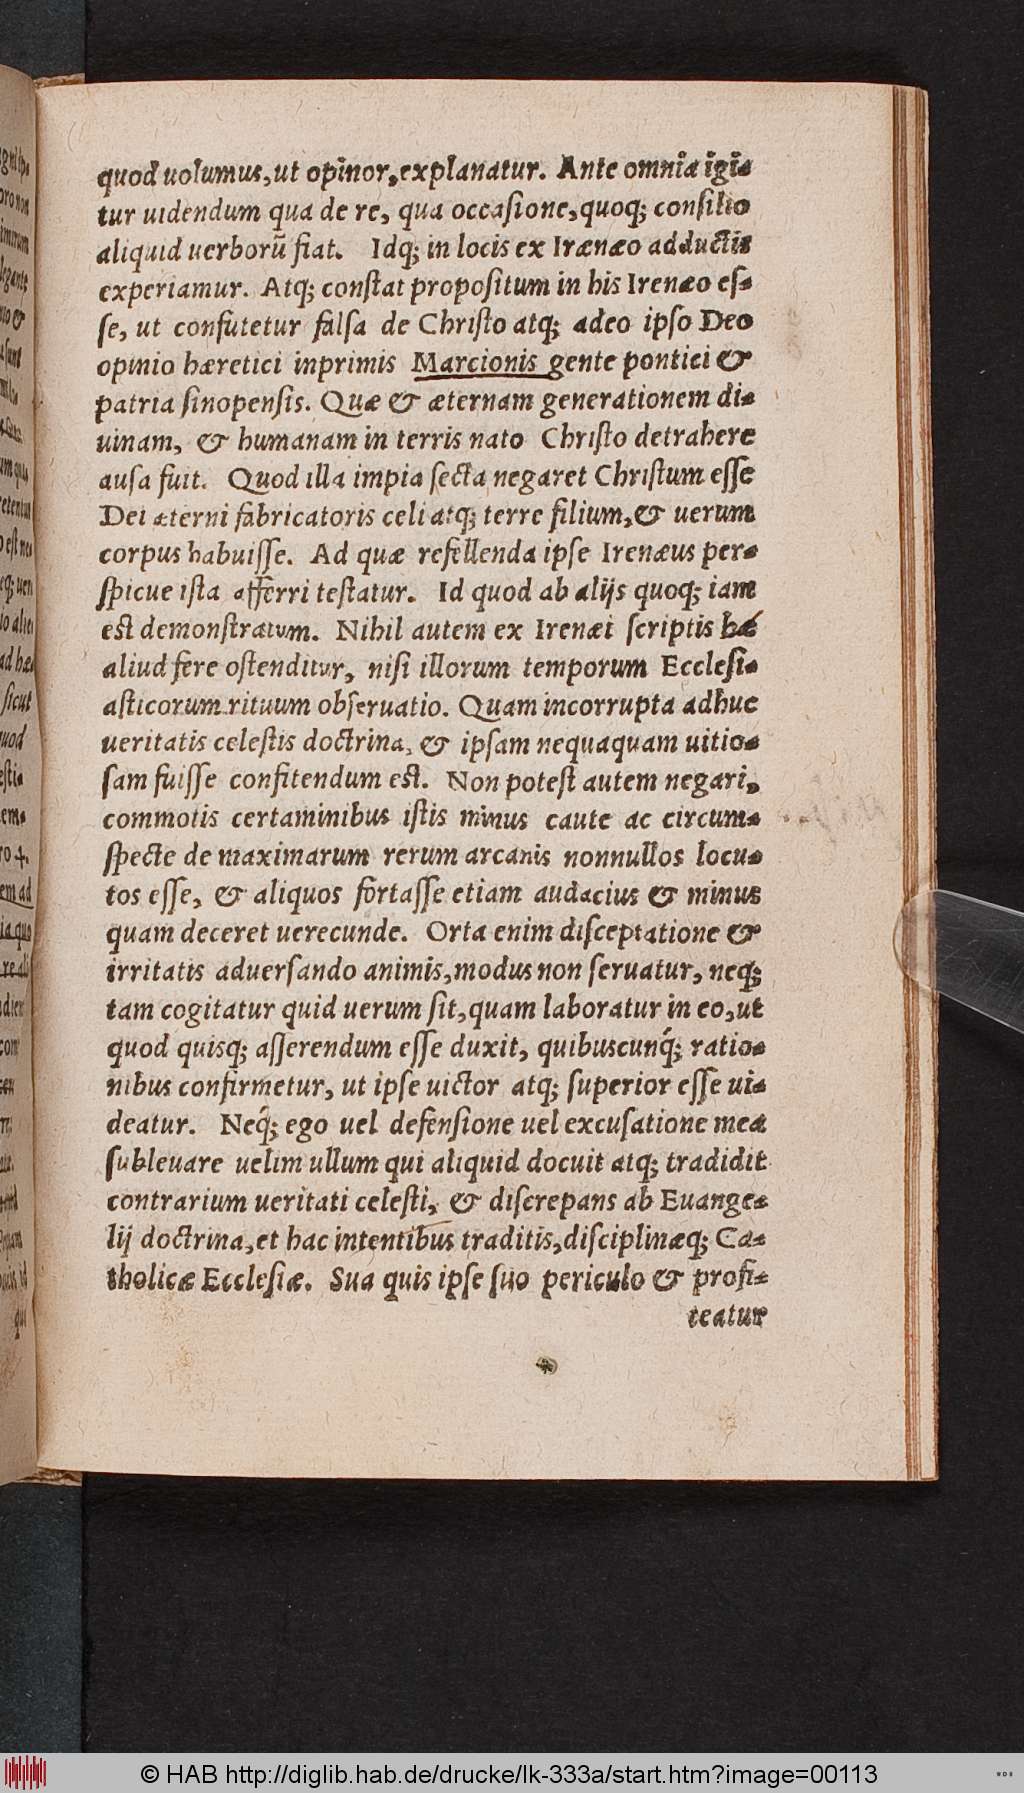 quod uolumus, ut opinor, explanatur. Ante omnia igi-
tur uidendum qua de re, qua occasione, quoq; consilio
aliquid uerborũ fiat. Idq; in locis ex Irænæo adductis
experiamur. Atq; constat propositum in his Irenæo es-
se, ut confutetur falsa de Christo atq; adeo ipso Deo
opinio hæretici inprimis Marcionis gente pontici &
patria sinopensis. Quæ & æternam generationem di-
uinam, & humanam in terris nato Christo detrahere
ausa fuit. Quod illa impia secta negaret Christum esse
Dei æterni fabricatoris celi atq; terre filium, & uerum
corpus habuisse. Ad quæ refellenda ipse Irenæus per-
spicue ista afferri testatur. Id quod ab alijs quoq; iam
est demonstratum. Nihil autem ex Irenæi scriptis
aliud fere ostenditur, nisi illorum temporum Ecclesi-
asticorum rituum obseruatio. Quam incorrupta adhuc
ueritatis celestis doctrina, & ipsam nequaquam uitio-
sam fuisse confitendum est. Non potest autem negari,
commotis certaminibus istis minus caute ac circum-
specte de maximarum rerum arcanis nonnullos locu-
tos esse, & aliquos fortasse etiam audacius & minus
quam deceret uerecunde. Orta enim disceptatione &
irritatis aduersando animis, modus non seruatur, neq;
tam cogitatur quid uerum sit, quam laboratur in eo, ut
quod quisq; asserendum esse duxit, quibuscunq́; ratio-
nibus confirmetur, ut ipse uictor atq; superior esse ui-
deatur. Neq́; ego uel defensione uel excusatione mea
subleuare uelim ullum qui aliquid docuit atq; tradidit
contrarium ueritati celesti, & discrepans ab Euange-
lij doctrina, et hac intentibus traditis, disciplinæq; Ca-
tholicæ Ecclesiæ. Sua quis ipse suo periculo & profi-
teatur
© HAB http://diglib.hab.de/drucke/lk-333a/start.htm?image=00113